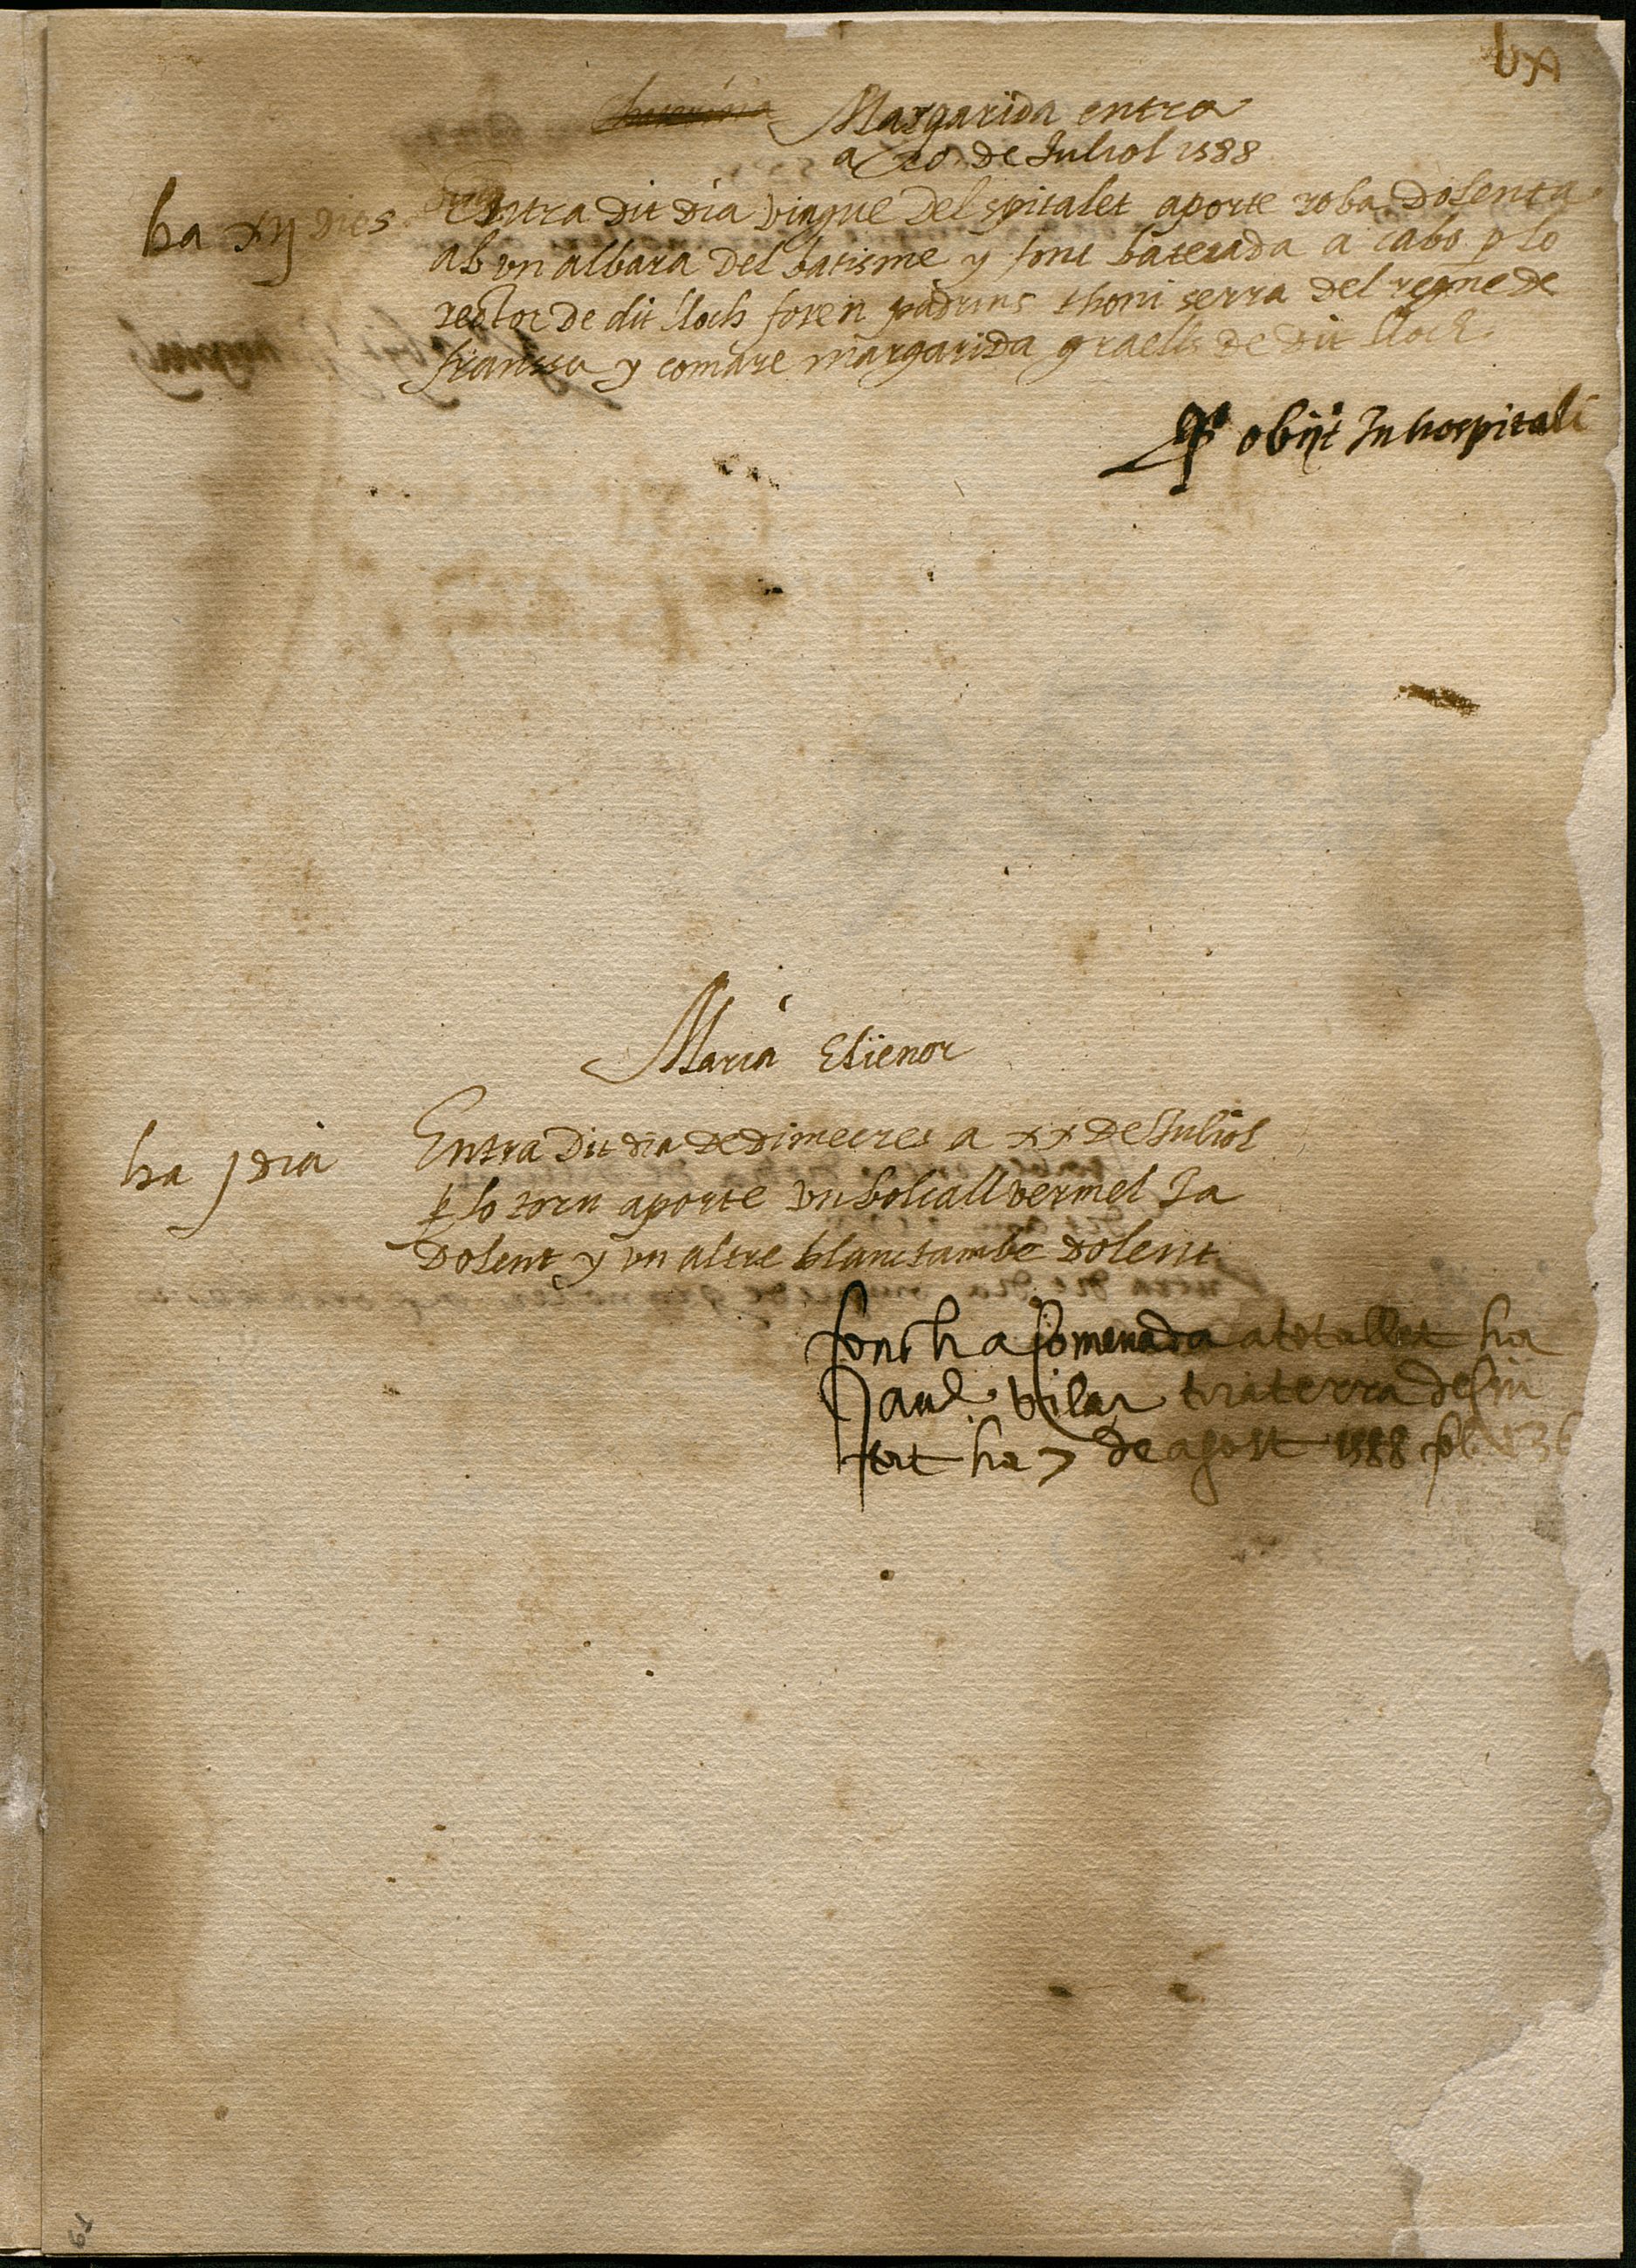 Margarida entra
a 20 de Juliol 1588
ha xij dies
Entra dit dia vingue del spitalet aporte roba dolenta
ab vn albara del batisme y fonc batejada a cabo p lo
rector de dit lloch foren padrins thoni serra del regne de
franssa y comare margarida graells de dit lloch
obijt In hospitali
Maria Elienor
ha j dia
Entra dit dia de dimecres a xx de Juliol
p lo torn aporte vn bolcall vermel Ja
dolent y vn altre blanc tambe dolent
fonch a comenada a tetallet ha
Paul vilar tiraterra
ha 7 de agost 1588